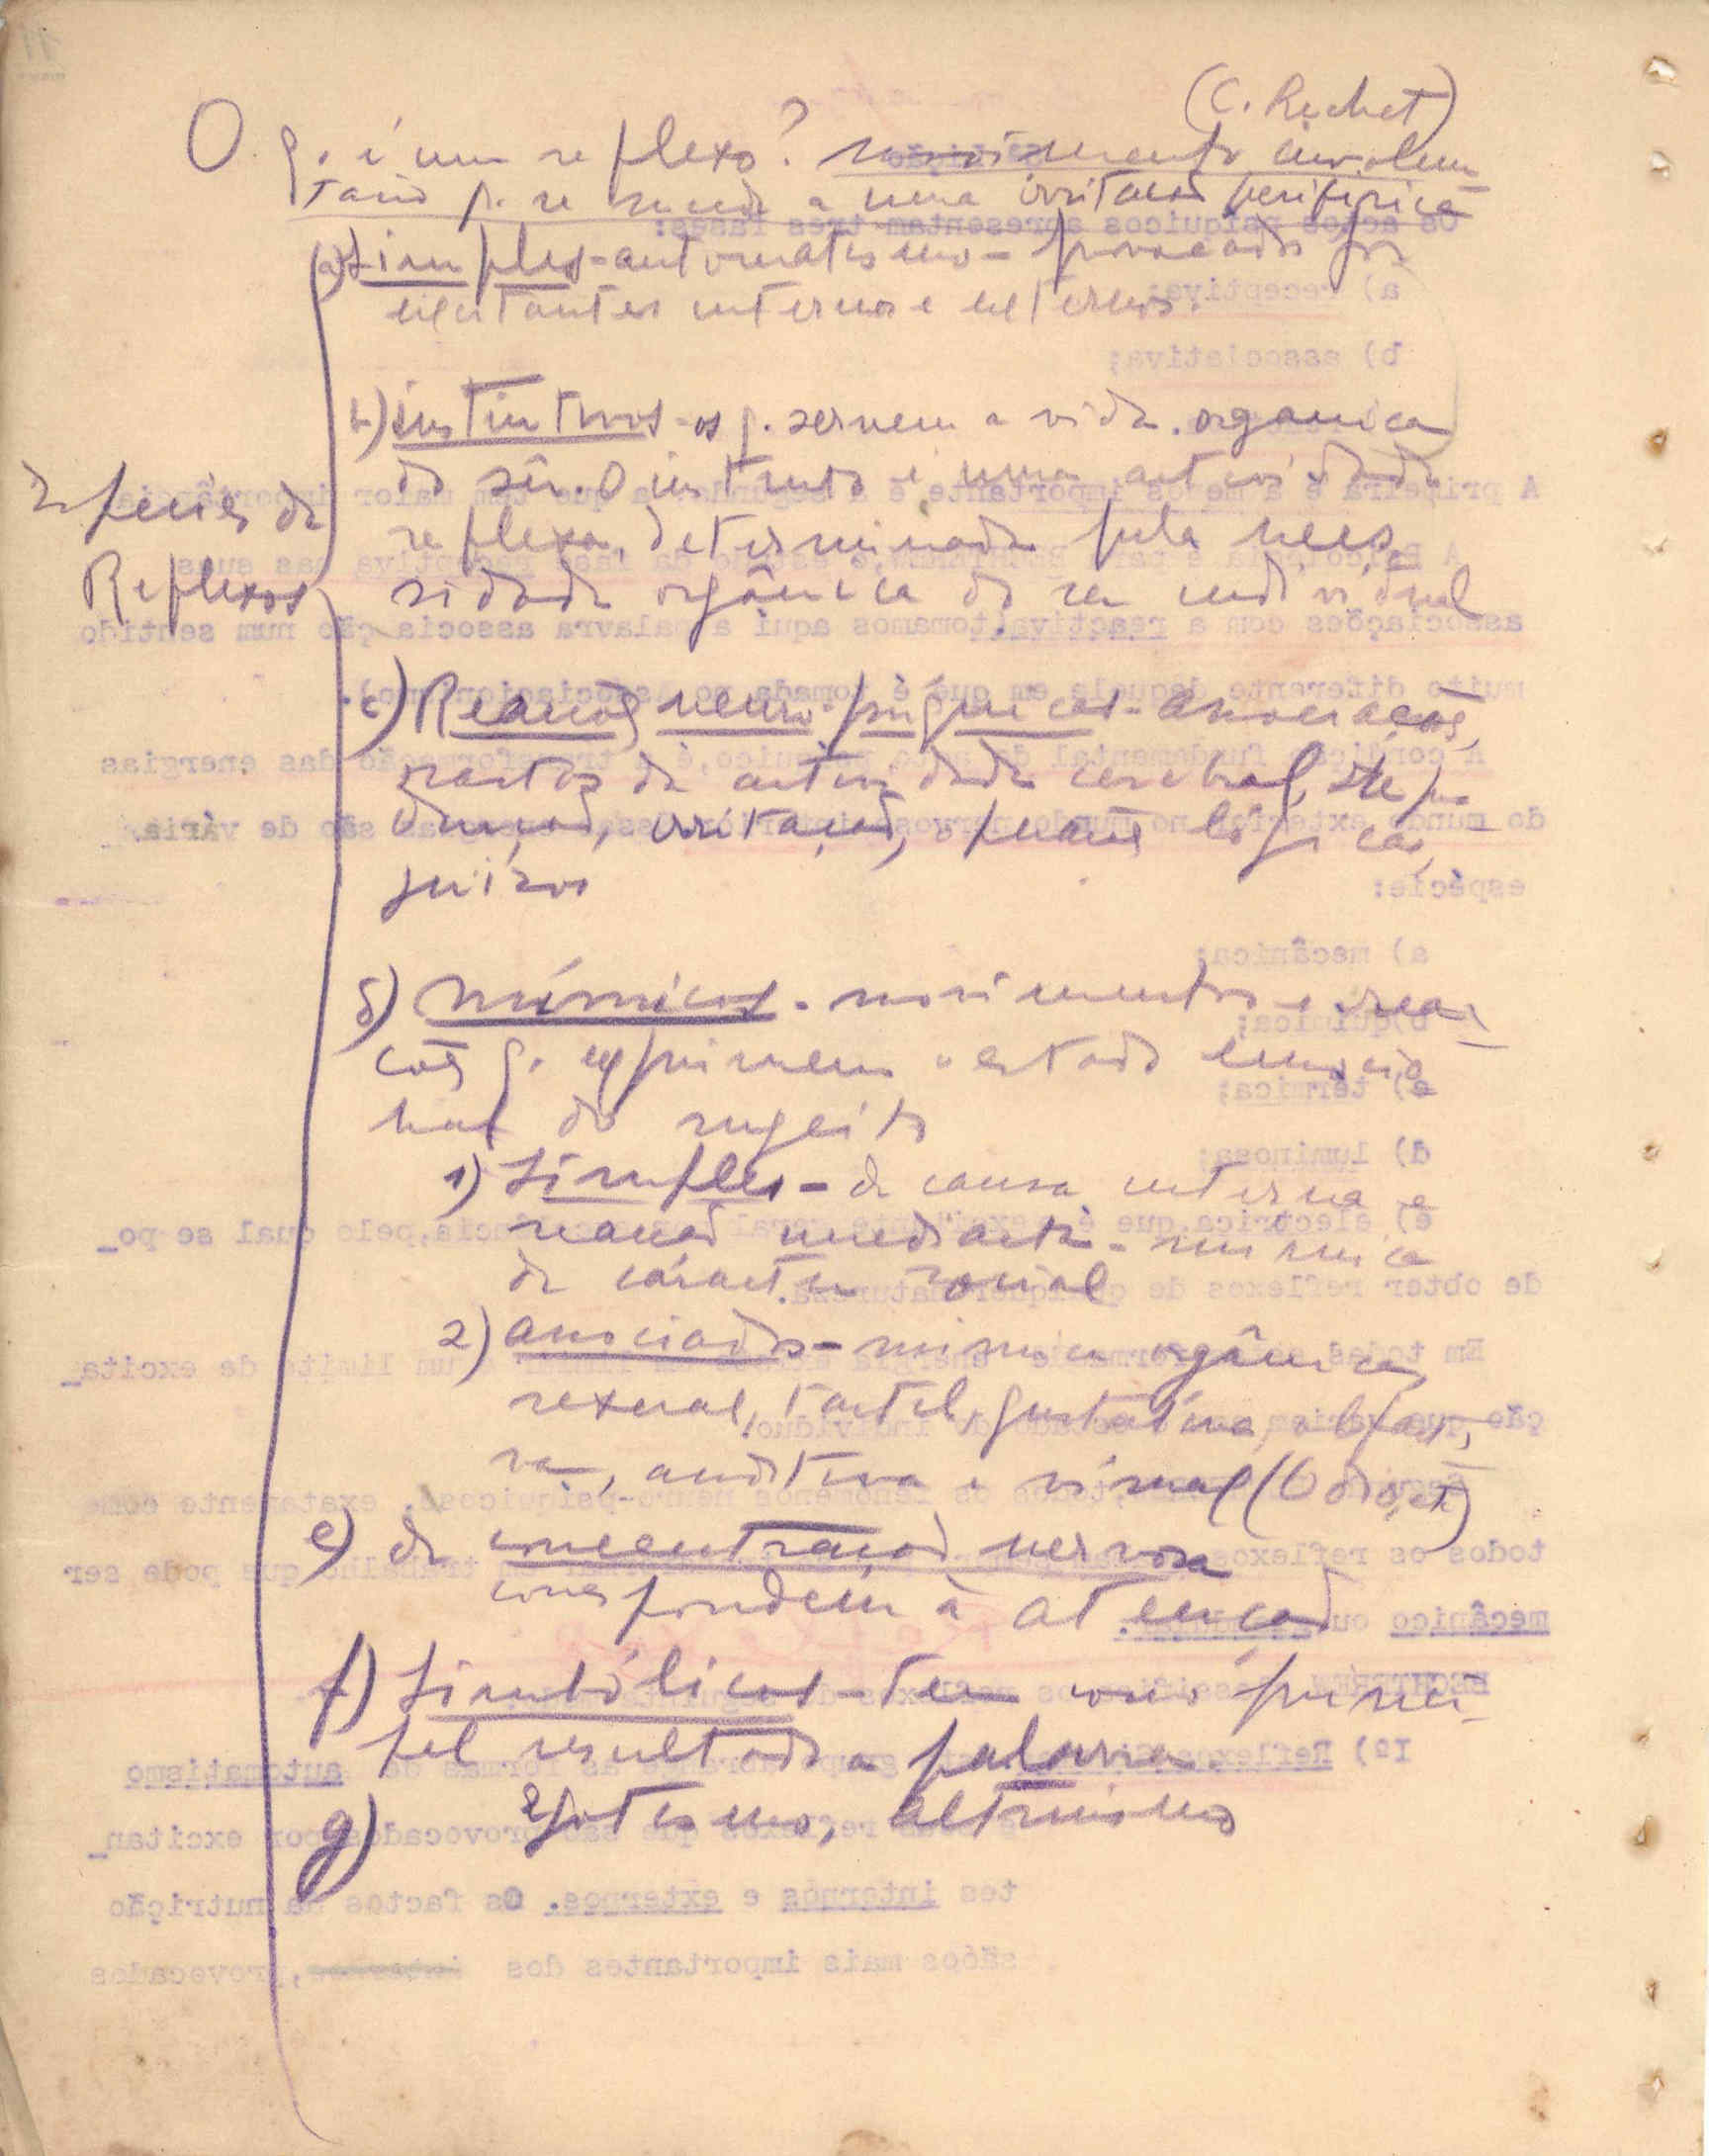 (C. Richet)
O q. é um reflexo? movimento involun
tario q. se sucede a uma irritacão periferica
a) Simples - automatismo - provocado por
excitantes internos e externos.
b) instintivos - os q. servem a vida organica
do sêr. O instinto é uma actividade
reflexa, determinada pela neces
sidade orgânica do ser individual
Especies de
Reflexos
c) Reacões neuro-psiquicas - Associações,
rastos da actividade cerebral,
irritação, operações logicas,
juizos
d) mímicos - movimentos e reac
cões q. exprimem o estado emocio
nal do sugeito
1) Simples - de causa interna e
reacão mediacta - mimica
de carácter social
2) associados - mimica orgânica,
sexual, tactil, gustativa, olfacti
va, auditiva e visual (Odio, etc)
e) de concentracão nervosa
correspondem à atenção
f) Simbólicos - tem como princi
pal resultado a palavra.
g) Egotismo, altruismo